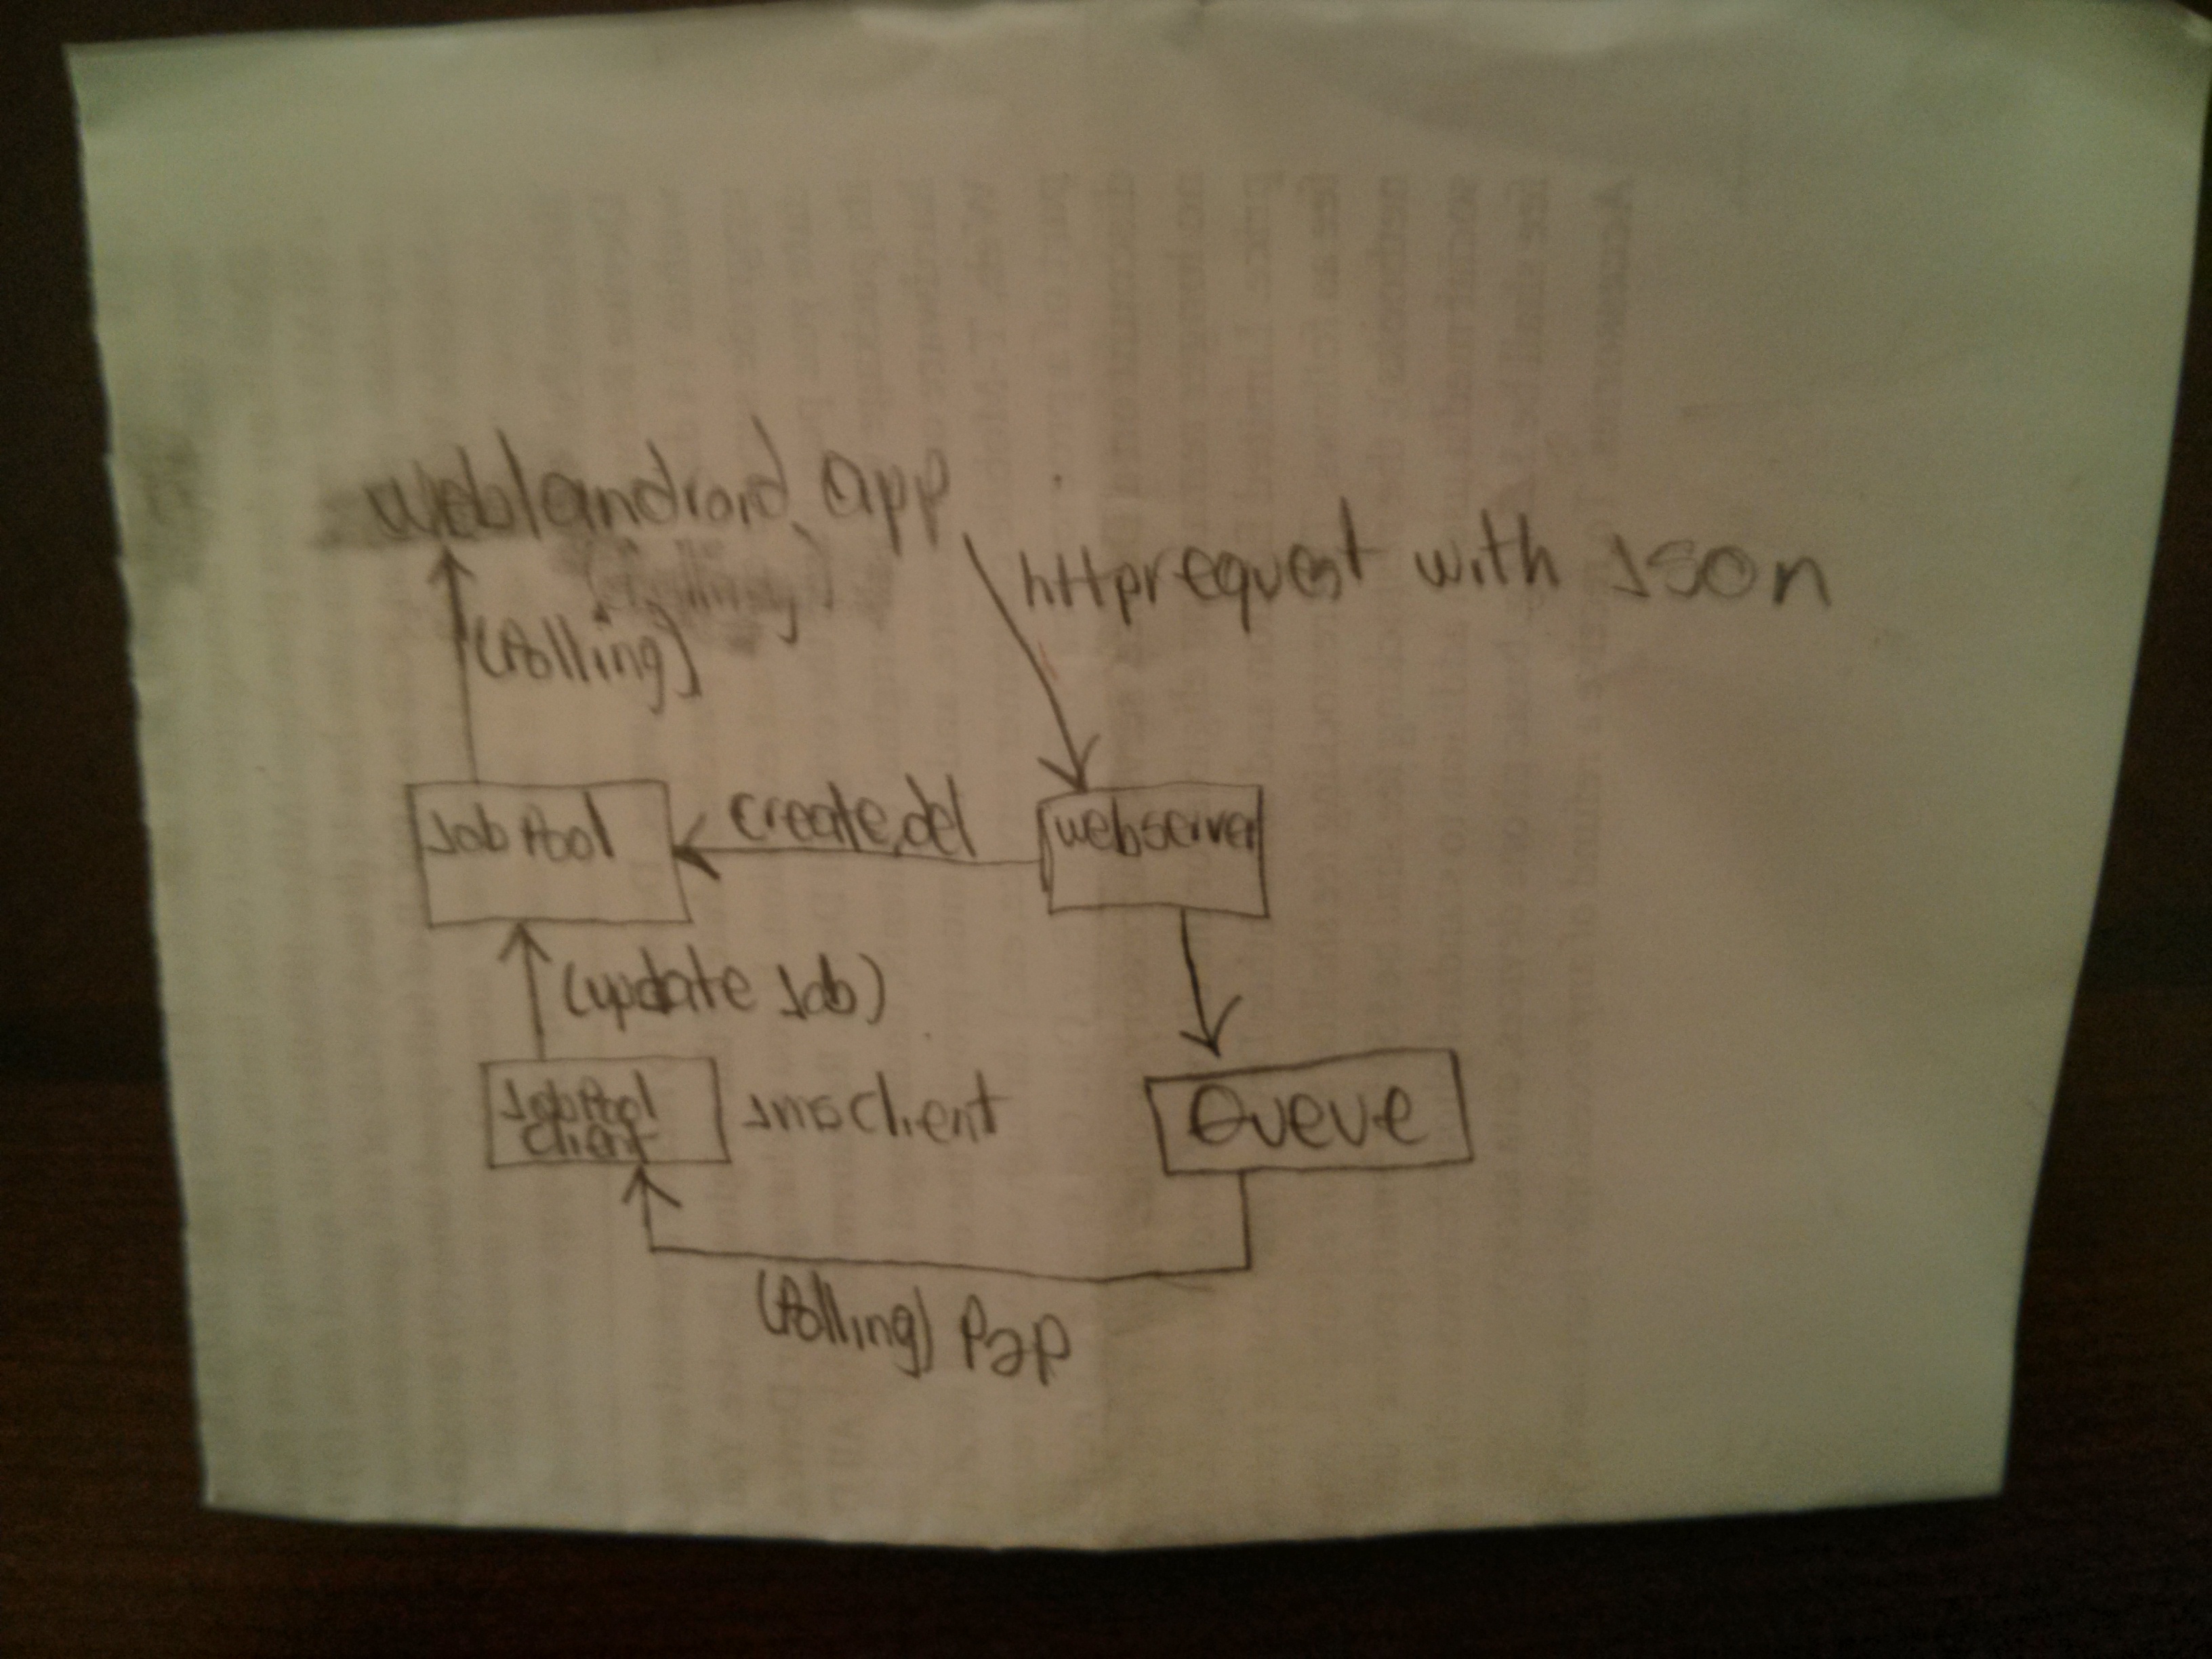 web/android app
http request with Json
(Polling)
Job Pool
create,del
webserver
(update Job)
Job Pool
Client
JmsClient
Queue
(Polling) P2P